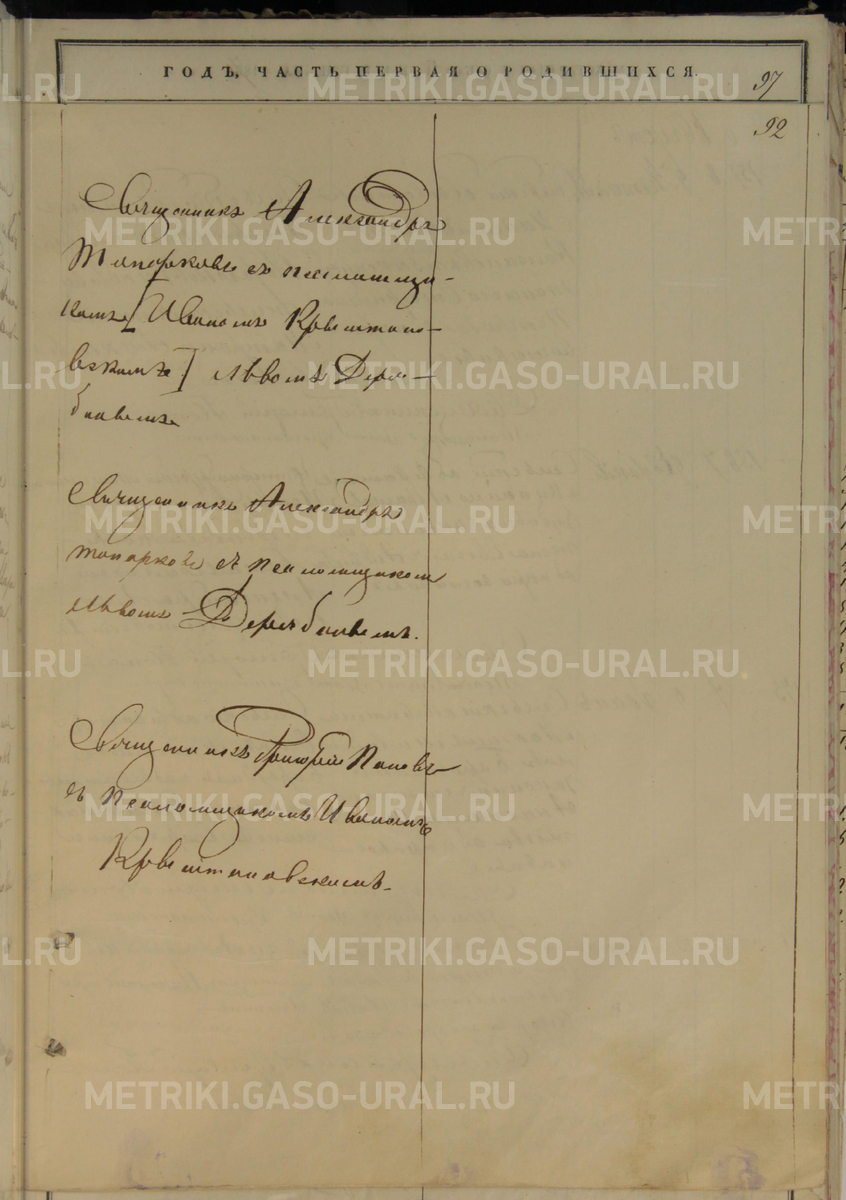 ГОДЪ, ЧАСТЬ ПЕРВАЯ О РОДИВШИХСЯ.
97
92
Священникъ Александръ
Топорковъ съ псаломщи-
комъ [Иваномъ Крвештано-
вскимъ] Львомъ Дери-
баивемъ
Священникъ Александръ
Топорковъ съ псаломщикомъ
Львомъ
Священникъ Григорій Поповъ
съ Псаломщикомъ Иваномъ
METRIKI.GASO-URAL.RU